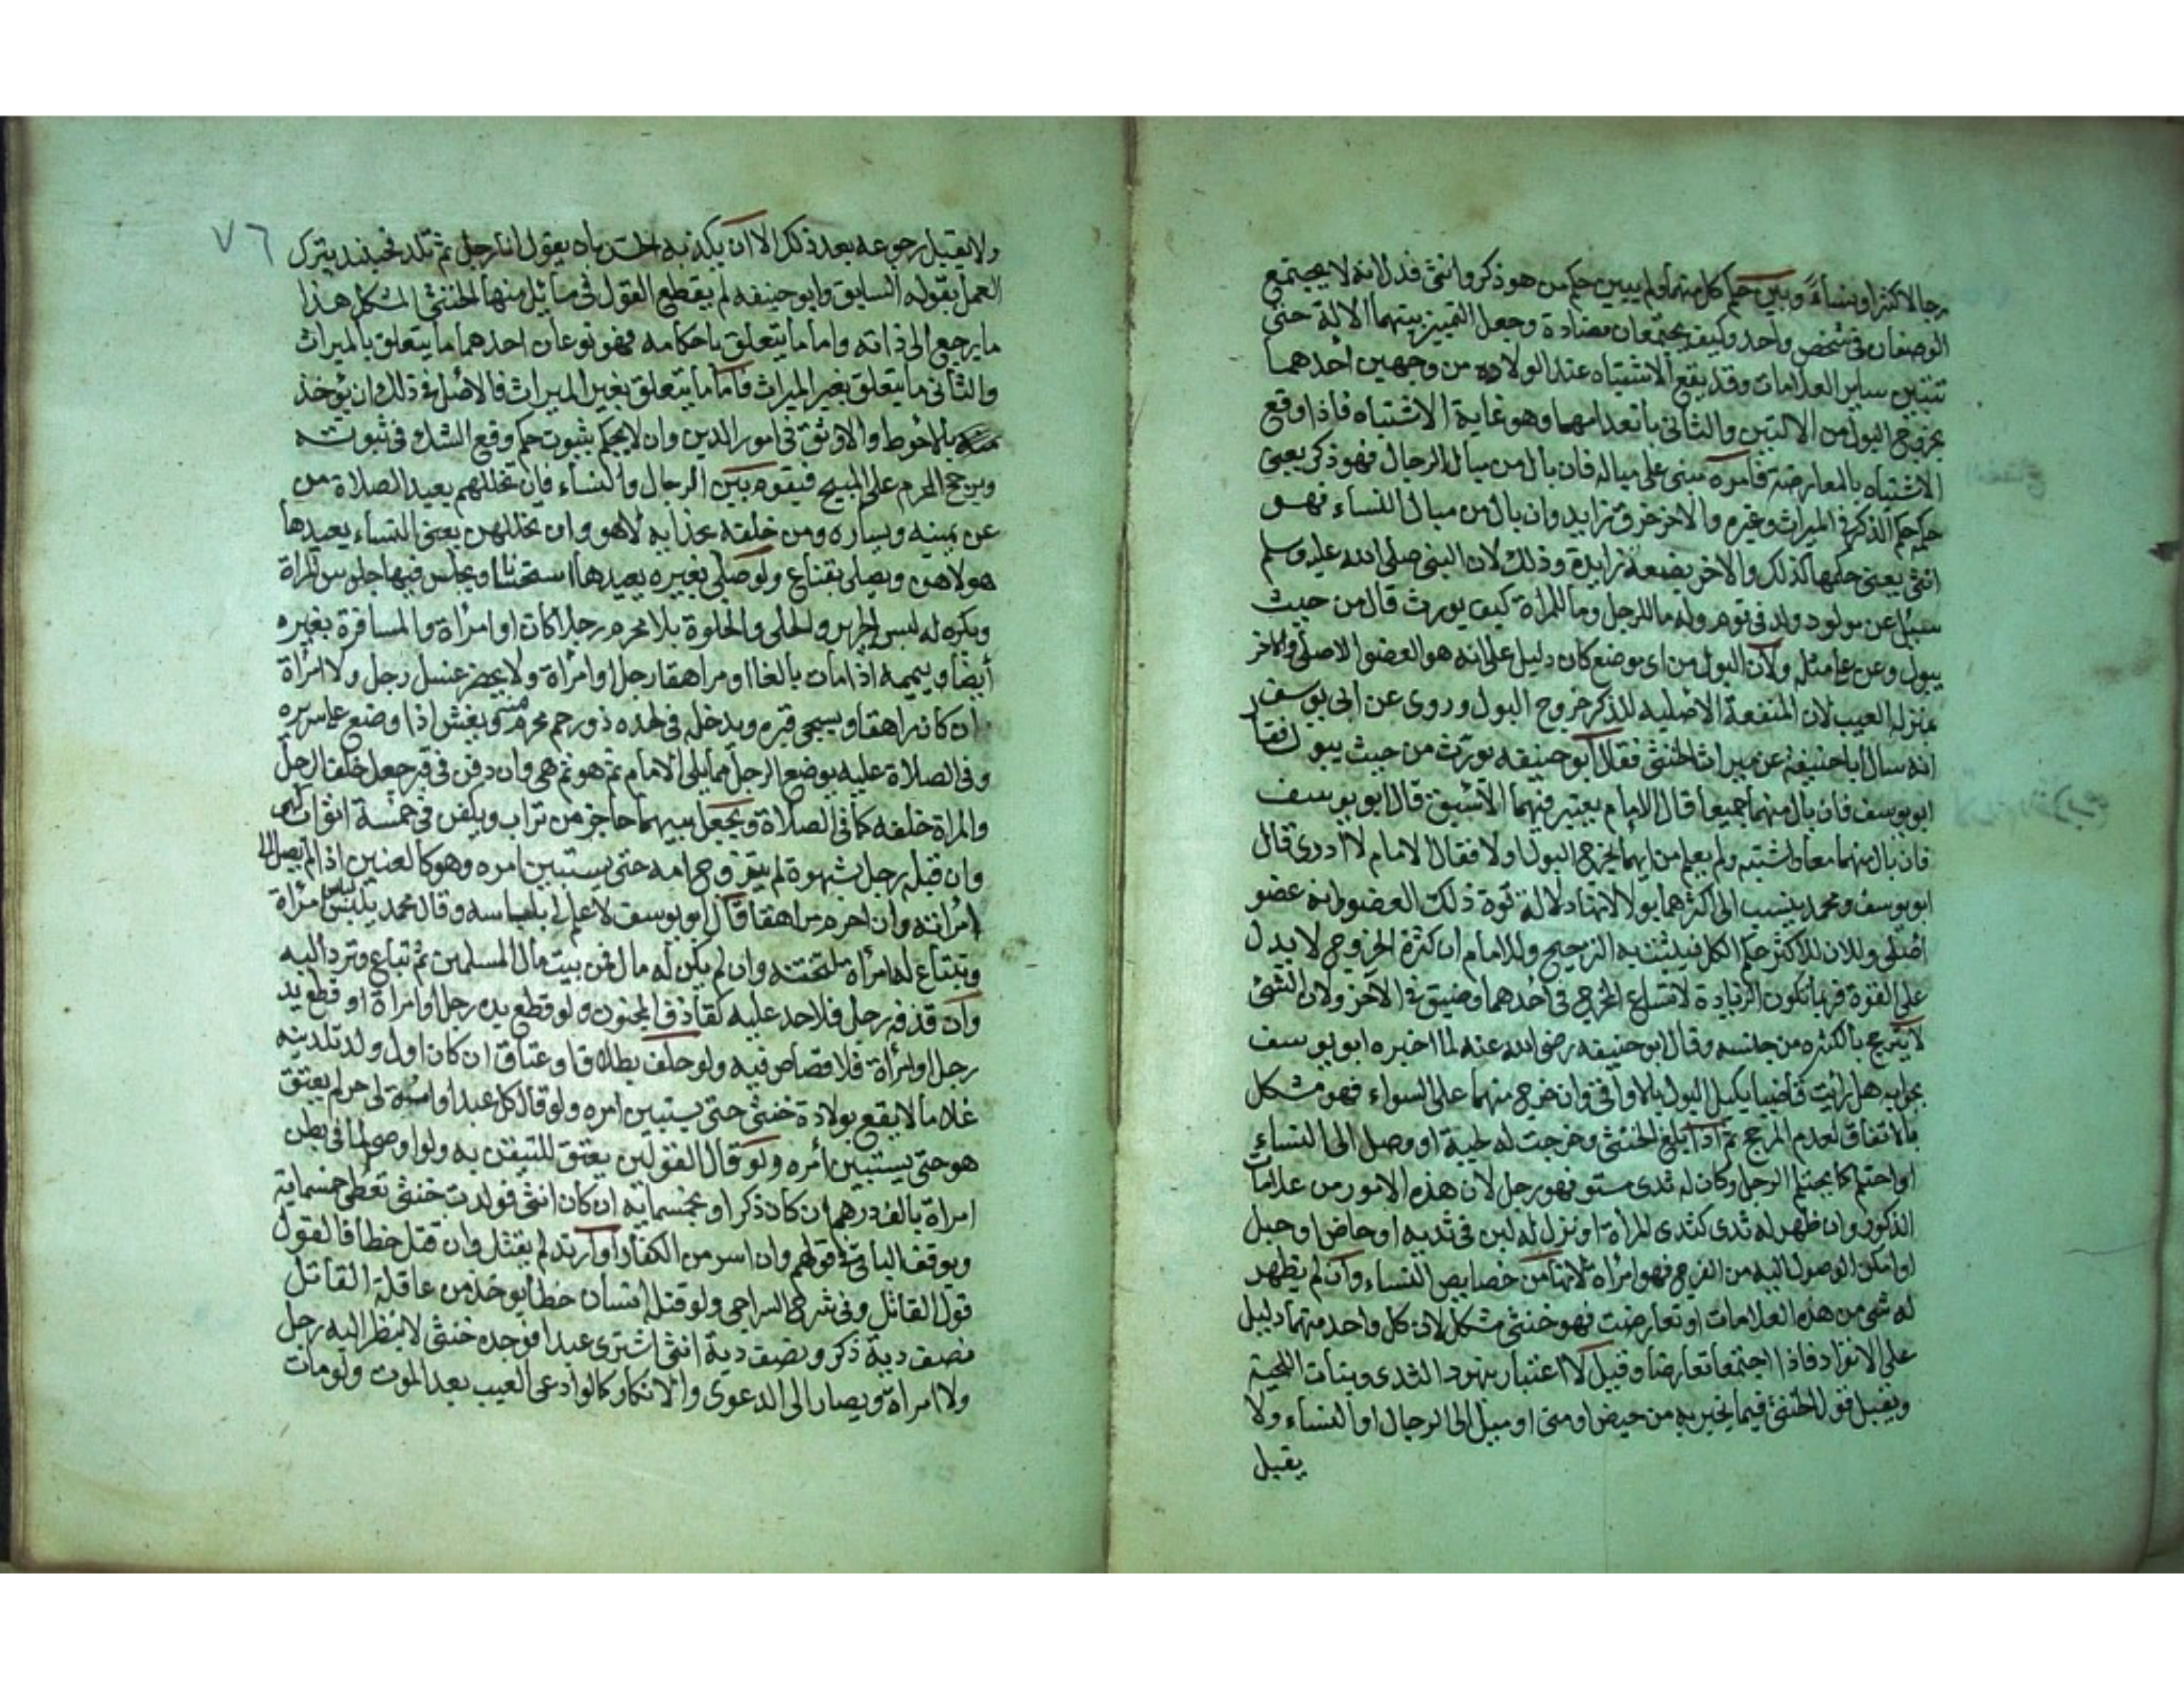 رجالا كثيرا ونساءً وبين حكم كل منهما ولم يبين حكم من هو ذكر وانثى فدل انه لا يجتمع
الوصفان في شخص واحد وكيف يجتمعان مضادة وجعل التمييز بينهما الالة حتى
تتبين ساير العلامات وقد يقع الاشتباه عند الولاده من وجهين احدهما
بخروج البول من الالتين والثاني بانعدامهما وهو غاية الاشتباه فاذا وقع
الاشتباه بالمعارضة فامره مبنى على مباله فان بال من مبال الرجال فهو ذكر يعنى
حكمه حكم الذكر في الميراث وغيره والاخر خرق زايد وان بال من مبال النساء فهو
انثى يعنى حكمها كذلك والاخر بضعة زايدة وذلك لان النبى صلى الله عليه وسلم
سئل عن مولود ولد في قوم وله ما للرجل وما للمراة كيف يورث قال من حيث
يبول وعن على مثله ولان البول من اى موضع كان دليل على انه هو العضو الاصلى والاخر
بمنزلة العيب لان المنفعة الاصلية للذكر خروج البول وروى عن ابى يوسف
انه سال ابا حنيفة عن ميراث الخنثى فقال ابو حنيفه يورث من حيث يبول فقال
ابو يوسف فان بال منهما جميعا قال الامام يعتبر فيهما الاسبق قال ابو يوسف
فان بال منهما معا واشتبه ولم يعلم من ايهما يخرج البول اولا فقال الامام لا ادرى قال
ابو يوسف ومحمد ينسب الى اكثرهما بولا لانها دلالة قوة ذلك العضو وانه عضو
اصلى ولان للاكثر حكم الكل فيثبت به الترجيح وللامام ان كثرة الخروج لا يدل
على القوة فربما تكون الزيادة لاتساع المخرج في احدهما وضيق في الاخر ولان الشئ
لا يترجح بالكثره من جنسه وقال ابو حنيفه رضى الله عنه لما اخبره ابو يوسف
بجوابه هل رايت قاضيا يكيل البول بالاواقى وان خرج منهما على السواء فهو مشكل
بالاتفاق لعدم المرجح ثم اذا بلغ الخنثى وخرجت له لحية او وصل الى النساء
او احتلم كما يحتلم الرجل وكان له ثدى مستو فهو رجل لان هذه الامور من علامات
الذكور وان ظهر له ثدى كثدى المراة او نزل له لبن في ثديه او حاض او حبل
او امكن الوصول اليه من الفرج فهو امراة لانها من خصايص النساء وان لم يظهر
له شى من هذه العلامات او تعارضت فهو خنثى مشكل لان كل واحد منهما دليل
على الانفراد فاذا اجتمعا تعارضا وقيل لا اعتبار بنهود الثدى ونبات اللحية
ويقبل قول الخنثى فيما يخبر به من حيض او منى او ميل الى الرجال او النساء ولا
يقبل
٧٦
ولا يقبل رجوعه بعد ذلك الا ان يكذبه الحس بان يقول انا رجل ثم تلد فحينئذ يترك
العمل بقوله السابق وابو حنيفه لم يقطع القول في مسائل منها الخنثى المشكل هذا
ما يرجع الى ذاته واما ما يتعلق باحكامه فهو نوعان احدهما ما يتعلق بالميراث
والثانى ما يتعلق بغير الميراث فاما ما يتعلق بغير الميراث فالاصل في ذلك ان يؤخذ
بالاحوط والاوثق في امور الدين وان لا يحكم بثبوت حكم وقع الشك في ثبوته
ويرجح المحرم على المبيح فيقوم بين الرجال والنساء فان تخللهم يعيد الصلاة من
عن يمينه ويساره ومن خلفه بحذايه لا هو وان تخللهن يعنى النساء يعيدها
هو لا هن ويصلى بقناع ولو صلى بغيره يعيدها استحسانا ويجلس فيها جلوس المراة
ويكره له لبس الحرير والحلى والخلوة بلا محرم رجلا كان او امراة والمسافرة بغيره
أيضا وييممه اذا مات بالغا او مراهقا رجل او امراة ولا يحضر غسل رجل ولا امراة
ان كان مراهقا ويسجى قبره ويدخله في لحده ذو رحم محرم منه وينعش اذا وضع على سريره
وفى الصلاة عليه يوضع الرجل مما يلى الامام ثم هو ثم هى وان دفن في قبر جعل خلف الرجل
والمراة خلفه كما في الصلاة ويجعل بينهما حاجز من تراب ويكفن في خمسة اثواب
وان قبله رجل بشهوة لم يتزوج امه حتى يستبين امره وهو كالعنين اذا لم يصل الى
امراته وان احرم مراهقا قال ابو يوسف لا علم لى بلباسه وقال محمد يلبس لباس امراة
وتبتاع له امراة تختنه وان لم يكن له مال فمن بيت مال المسلمين ثم تباع وترد اليه
وان قذفه رجل فلا حد عليه كقاذف المجنون ولو قطع يده رجل او امراة او قطع يد
رجل او امراة فلا قصاص فيه ولو حلف بطلاق او عتاق ان كان اول ولد تلدينه
غلاما لا يقع بولادة خنثى حتى يستبين امره ولو قال كل عبد او امة لى حر لم يعتق
هو حتى يستبين أمره ولو قال القولين يعتق للتيقن به ولو اوصى لما في بطن
امراة بالف درهم ان كان ذكرا او بخمسماية ان كان انثى فولدت خنثى تعطى خمسماية
ويوقف الباقى في قولهم وان اسر من الكفار او ارتد لم يقتل وان قتل خطأ فالقول
قول القاتل وفى شرح السراجى ولو قتله انسان خطأ يوخذ من عاقلة القاتل
نصف دية ذكر ونصف دية انثى اشترى عبدا فوجده خنثى لا ينظر اليه رجل
ولا امراة ويصار الى الدعوى والانكار كما لو ادعى العيب بعد الموت ولو مات